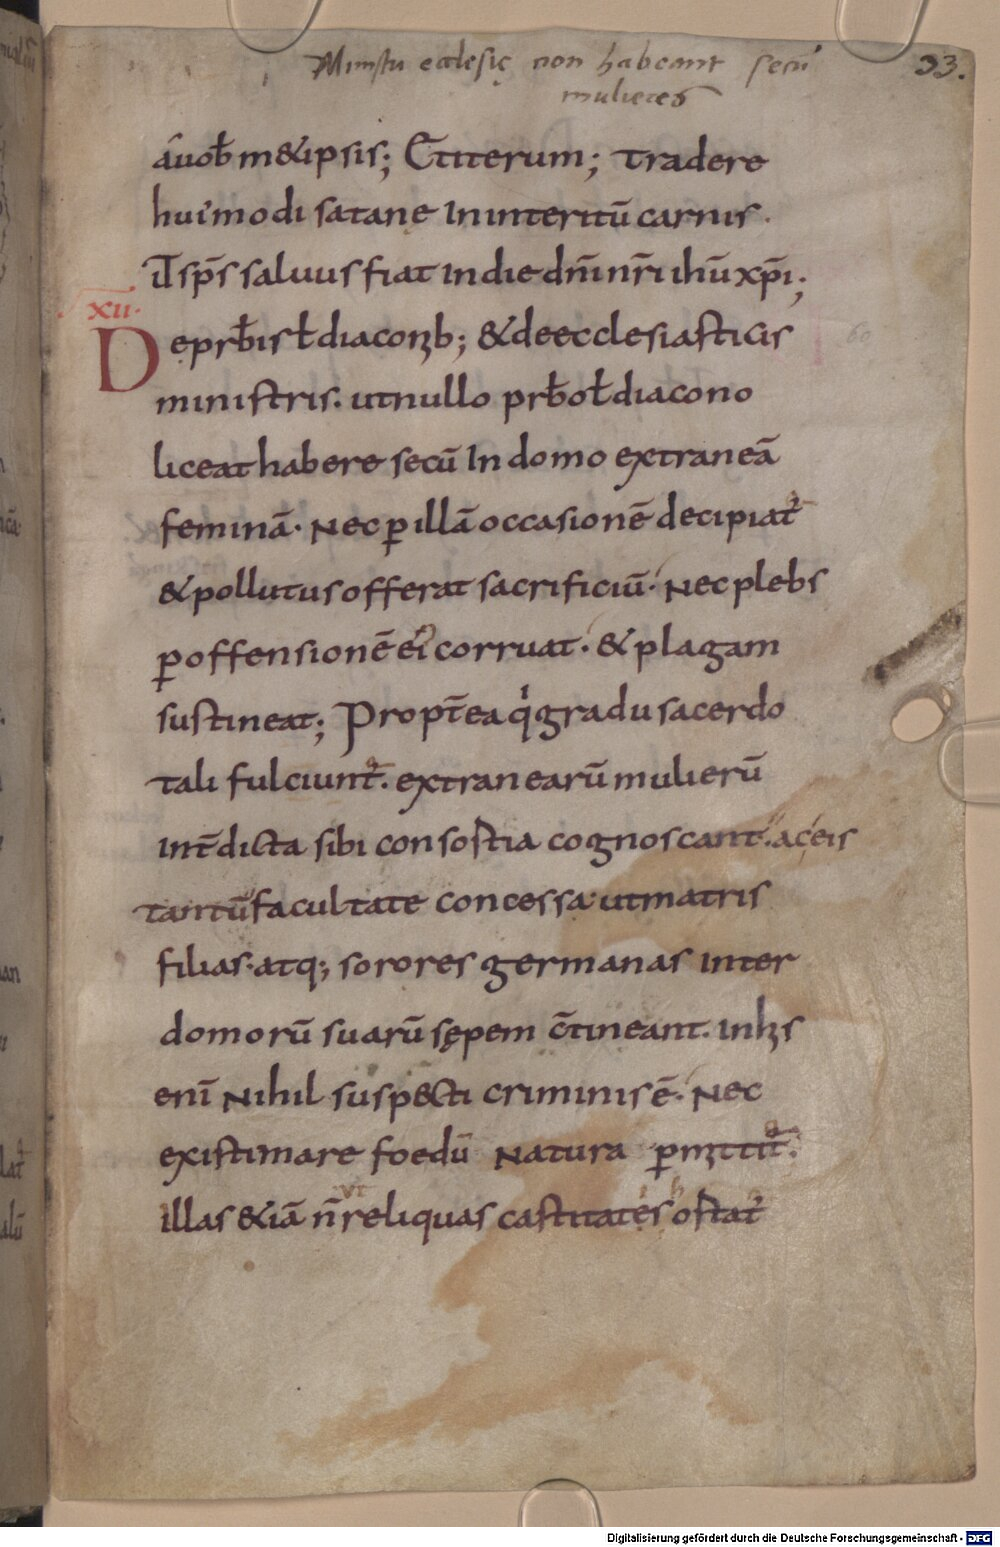 Ministri ecclesię non habeant secū
mulieres
33.
a uob̄ m&ipsis; Et iterum; tradere
hui'modi satane In interitū carnis.
ut sp̄s saluus fiat In die dn̄i nr̄i ihū xp̄i;
XII.
De prb̄is ł diaconib; & de ecclesiasticis
ministris. ut nullo prb̄o ł diacono
liceat habere secū In domo extraneā
feminā. Nec p̱ illā occasionē decipiat᷑
& pollutus offerat sacrificiū. Nec plebs
p̱ offensionē ei' corruat. & plagam
sustineat; Propt̄ea qͥ gradu sacerdo
tali fulciunt᷑. extranearū mulierū
Int̄dicta sibi consortia cognoscant. ac eis
tantū facultate concessa ut matris
filias. atq; sorores germanas Inter
domorū suarū sępem c̄tineant. In his
enī Nihil susp&cti criminis ē. Nec
existimare foedū Natura p̱mittit᷑.
illas &iā n̄ reliquas castitatis